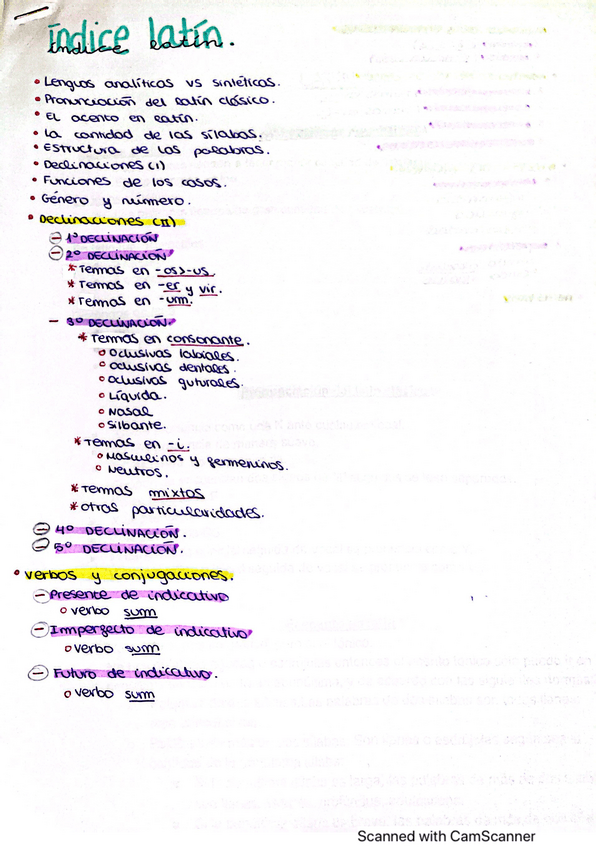 índice latín
índice latín.
• Lenguas analíticas vs sintéticas.
• Pronunciación del latín clásico.
• El acento en latín.
• La cantidad de las sílabas.
• Estructura de las palabras.
• Declinaciones (I)
• Funciones de los casos.
• Género y número.
• Declinaciones (II)
– 1º DECLINACIÓN
– 2º DECLINACIÓN
* Temas en -os>-us
* Temas en -er y vir.
* Temas en -um.
– 3º DECLINACIÓN.
* Temas en consonante.
○ Oclusivas labiales.
○ Oclusivas dentales.
○ Oclusivas guturales.
○ Líquida.
○ Nasal
○ Silbante.
* Temas en -i.
○ Masculinos y femeninos.
○ Neutros.
* Temas mixtos
* Otras particularidades.
– 4º DECLINACIÓN.
– 5º DECLINACIÓN.
• Verbos y conjugaciones.
– Presente de indicativo
○ verbo sum
– Imperfecto de indicativo
○ verbo sum
– Futuro de indicativo.
○ verbo sum
Scanned with CamScanner